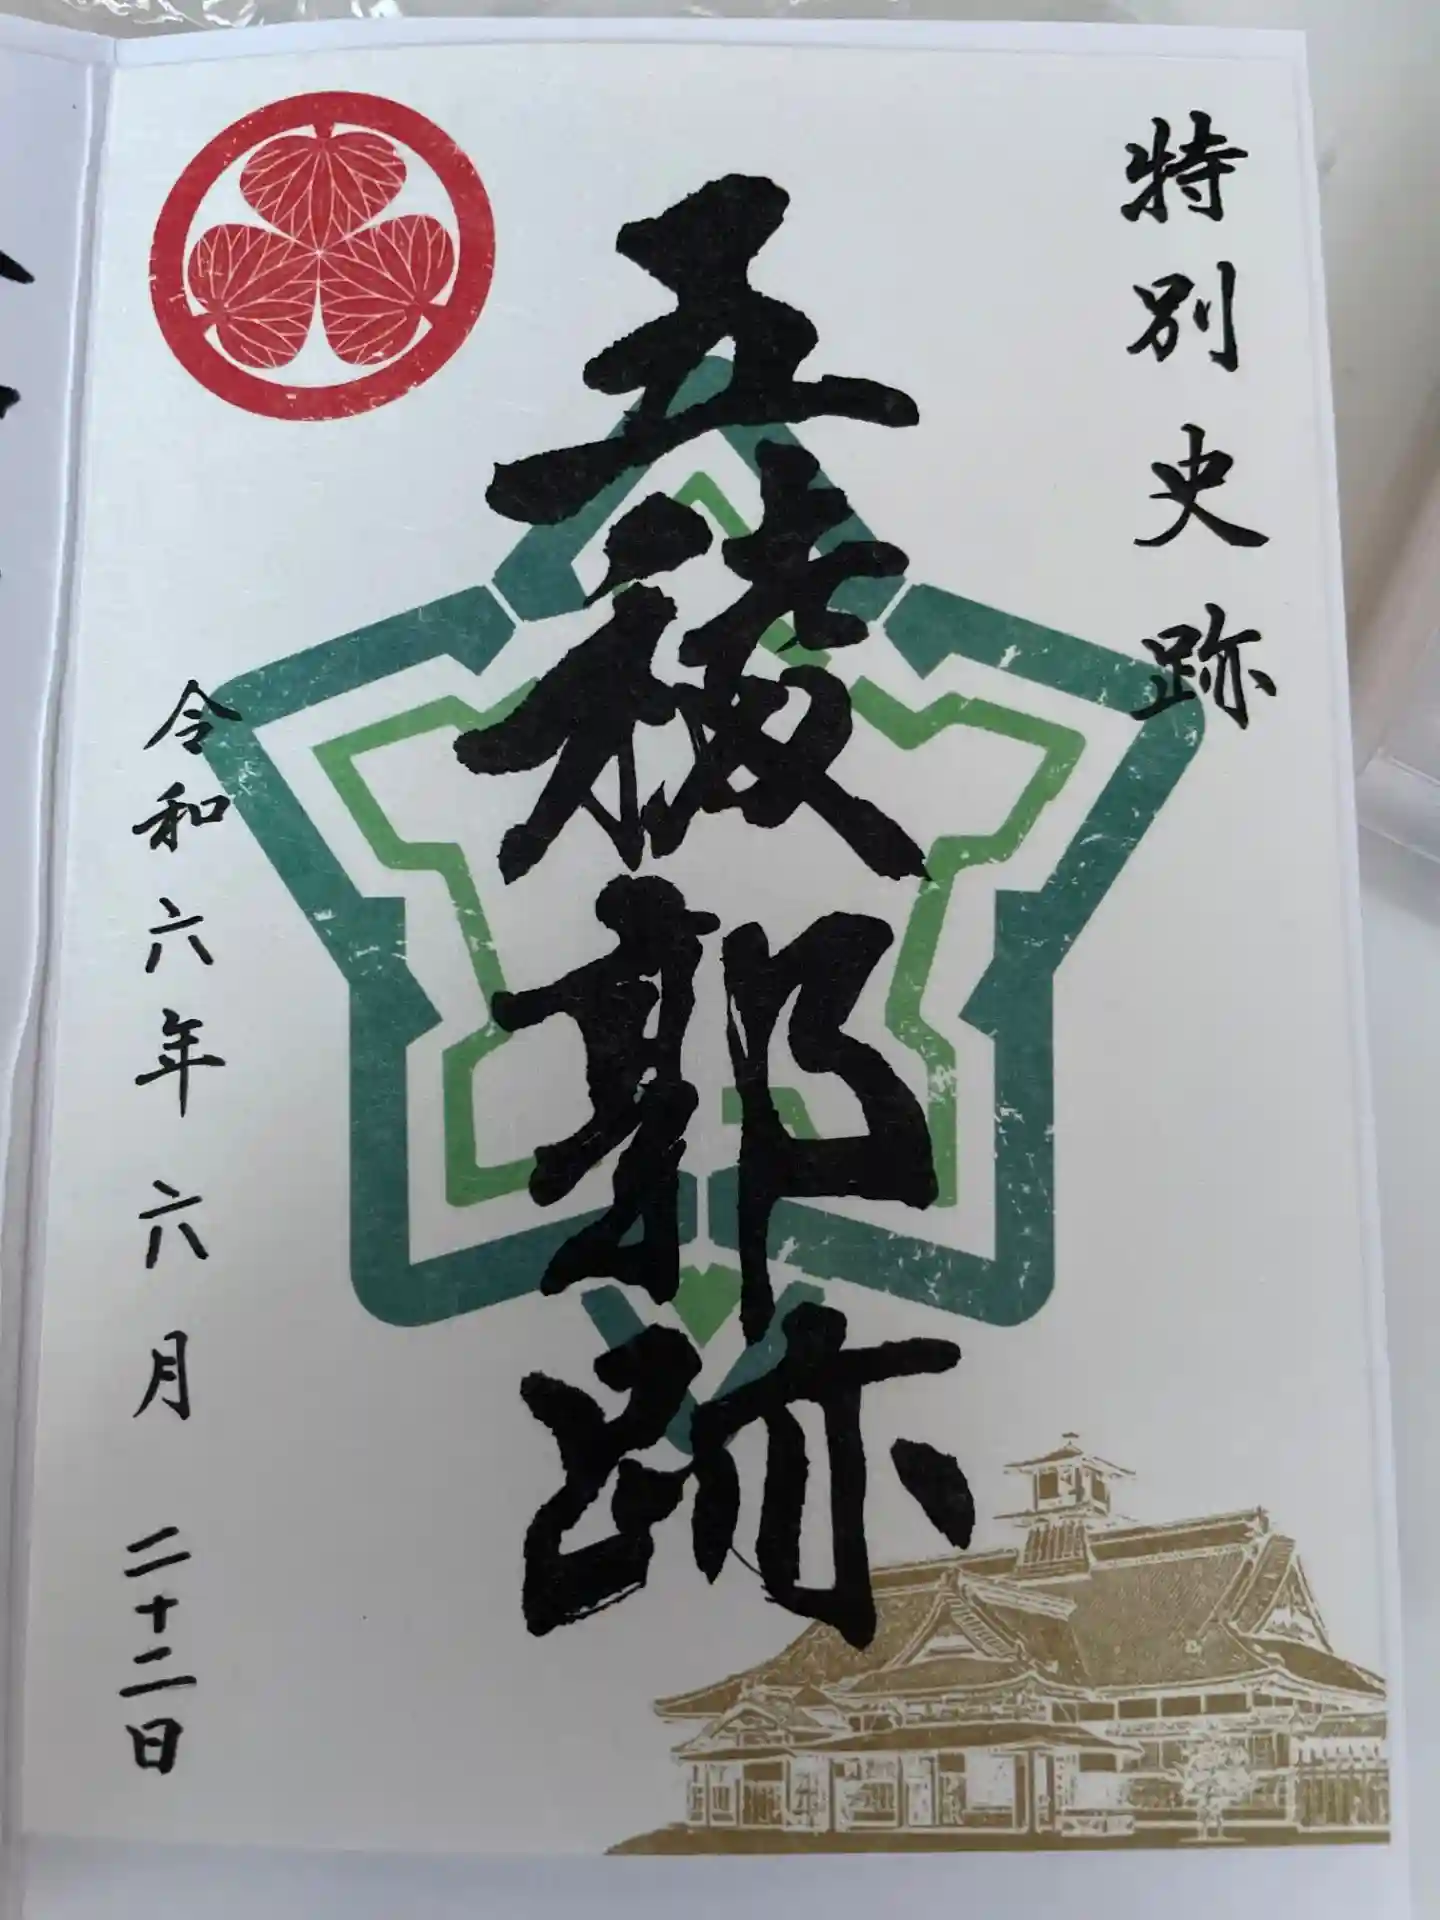 特別史跡
五稜郭跡
令和六年六月二十二日